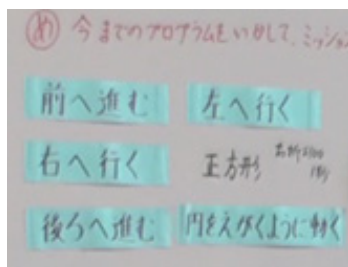 め 今までのプログラムをいかして、ミッション
前へ進む 左へ行く
右へ行く 正方形
後ろへ進む 円をえがくように動く